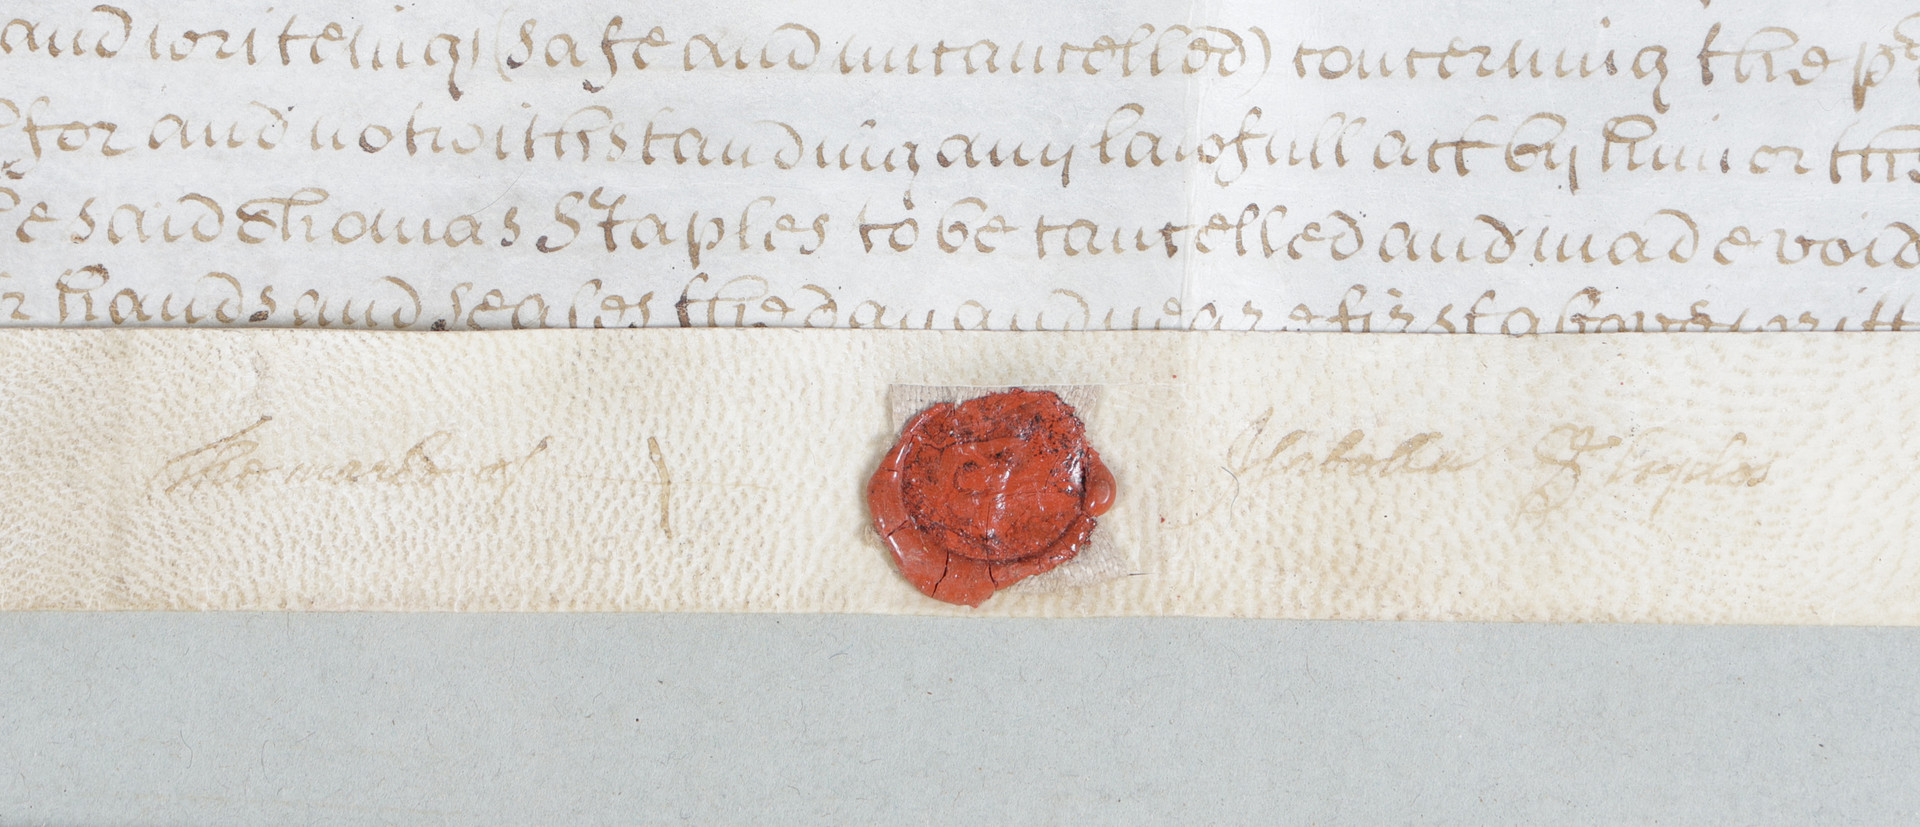 and writeings (safe and uncancelled) concerning the pr
for and notwithstanding any lawfull act by him or
said Thomas Staples to be cancelled and made void
hands and seales the day and yeare first above writt
The marke of Isabella Staples